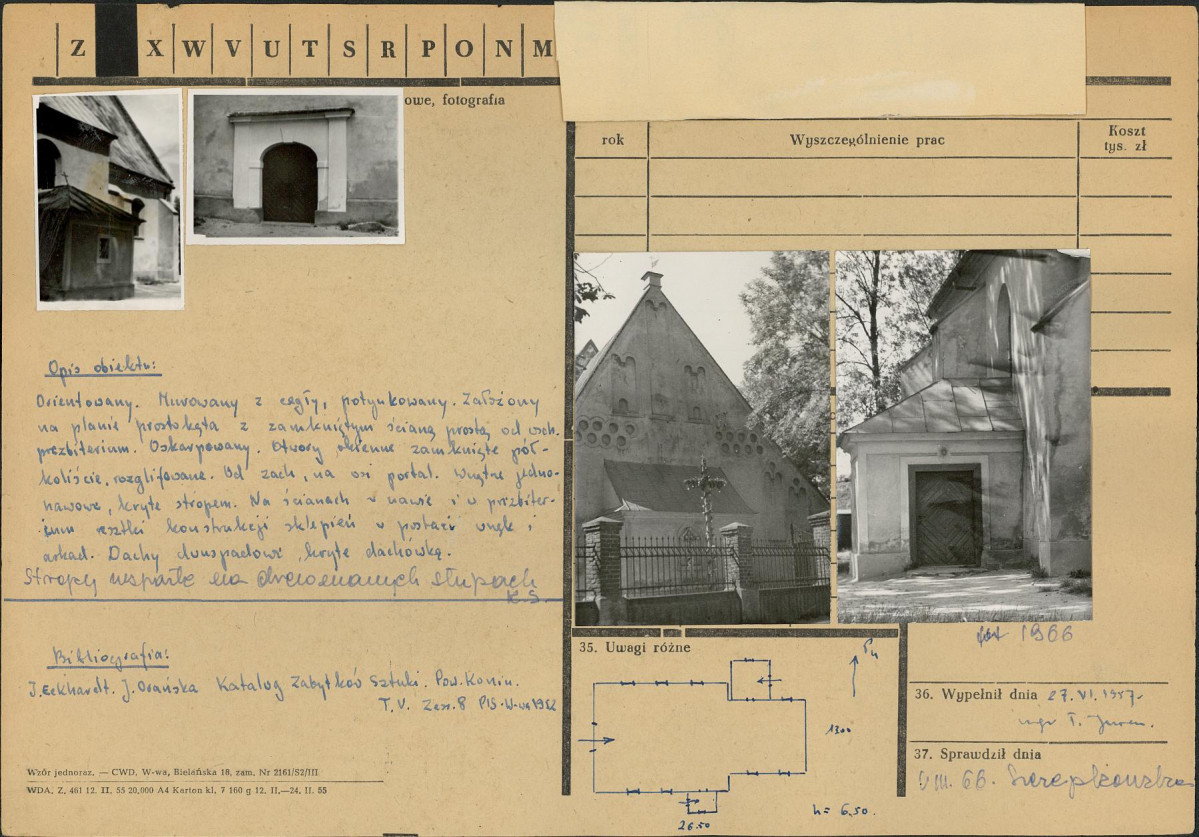 Z X W V U T S R P O N M
owe, fotografia
rok Wyszczególnienie prac Koszt
tys. zł
Opis obiektu:
Orientowany. Murowany z cegły, potynkowany. Założony
na planie prostokąta z zamkniętym ścianą prostą od wsch.
prezbiterium. Oskarpowany. Otwory okienne zamknięte pół-
koliście, rozglifowane. Od zach, na osi portal. Wnętrze jedno-
nawowe, kryte stropem. Na ścianach w nawie i w prezbiter-
ium resztki konstrukcji sklepień w postaci wnęk i
arkad. Dachy dwuspadowe, kryte dachówką.
Stropy wsparte na drewnianych słupach
K.S.
Bibliografia:
J. Eckhardt. J. Orańska Katalog Zabytków Sztuki. Pow. Konin.
T. V. Zesz. 8 PIS. W-wa 1952
Wzór jednoraz. — CWD, W-wa, Bielańska 18, zam. Nr 2161/S2/III
WDA. Z. 461 12. II. 55 20,000 A4 Karton kl. 7 160 g 12. II.—24. II. 55
fot 1966
35. Uwagi różne
1300
26.50
h= 6,50.
36. Wypełnił dnia 27. VI. 1957.
mgr T.
37. Sprawdził dnia
66.